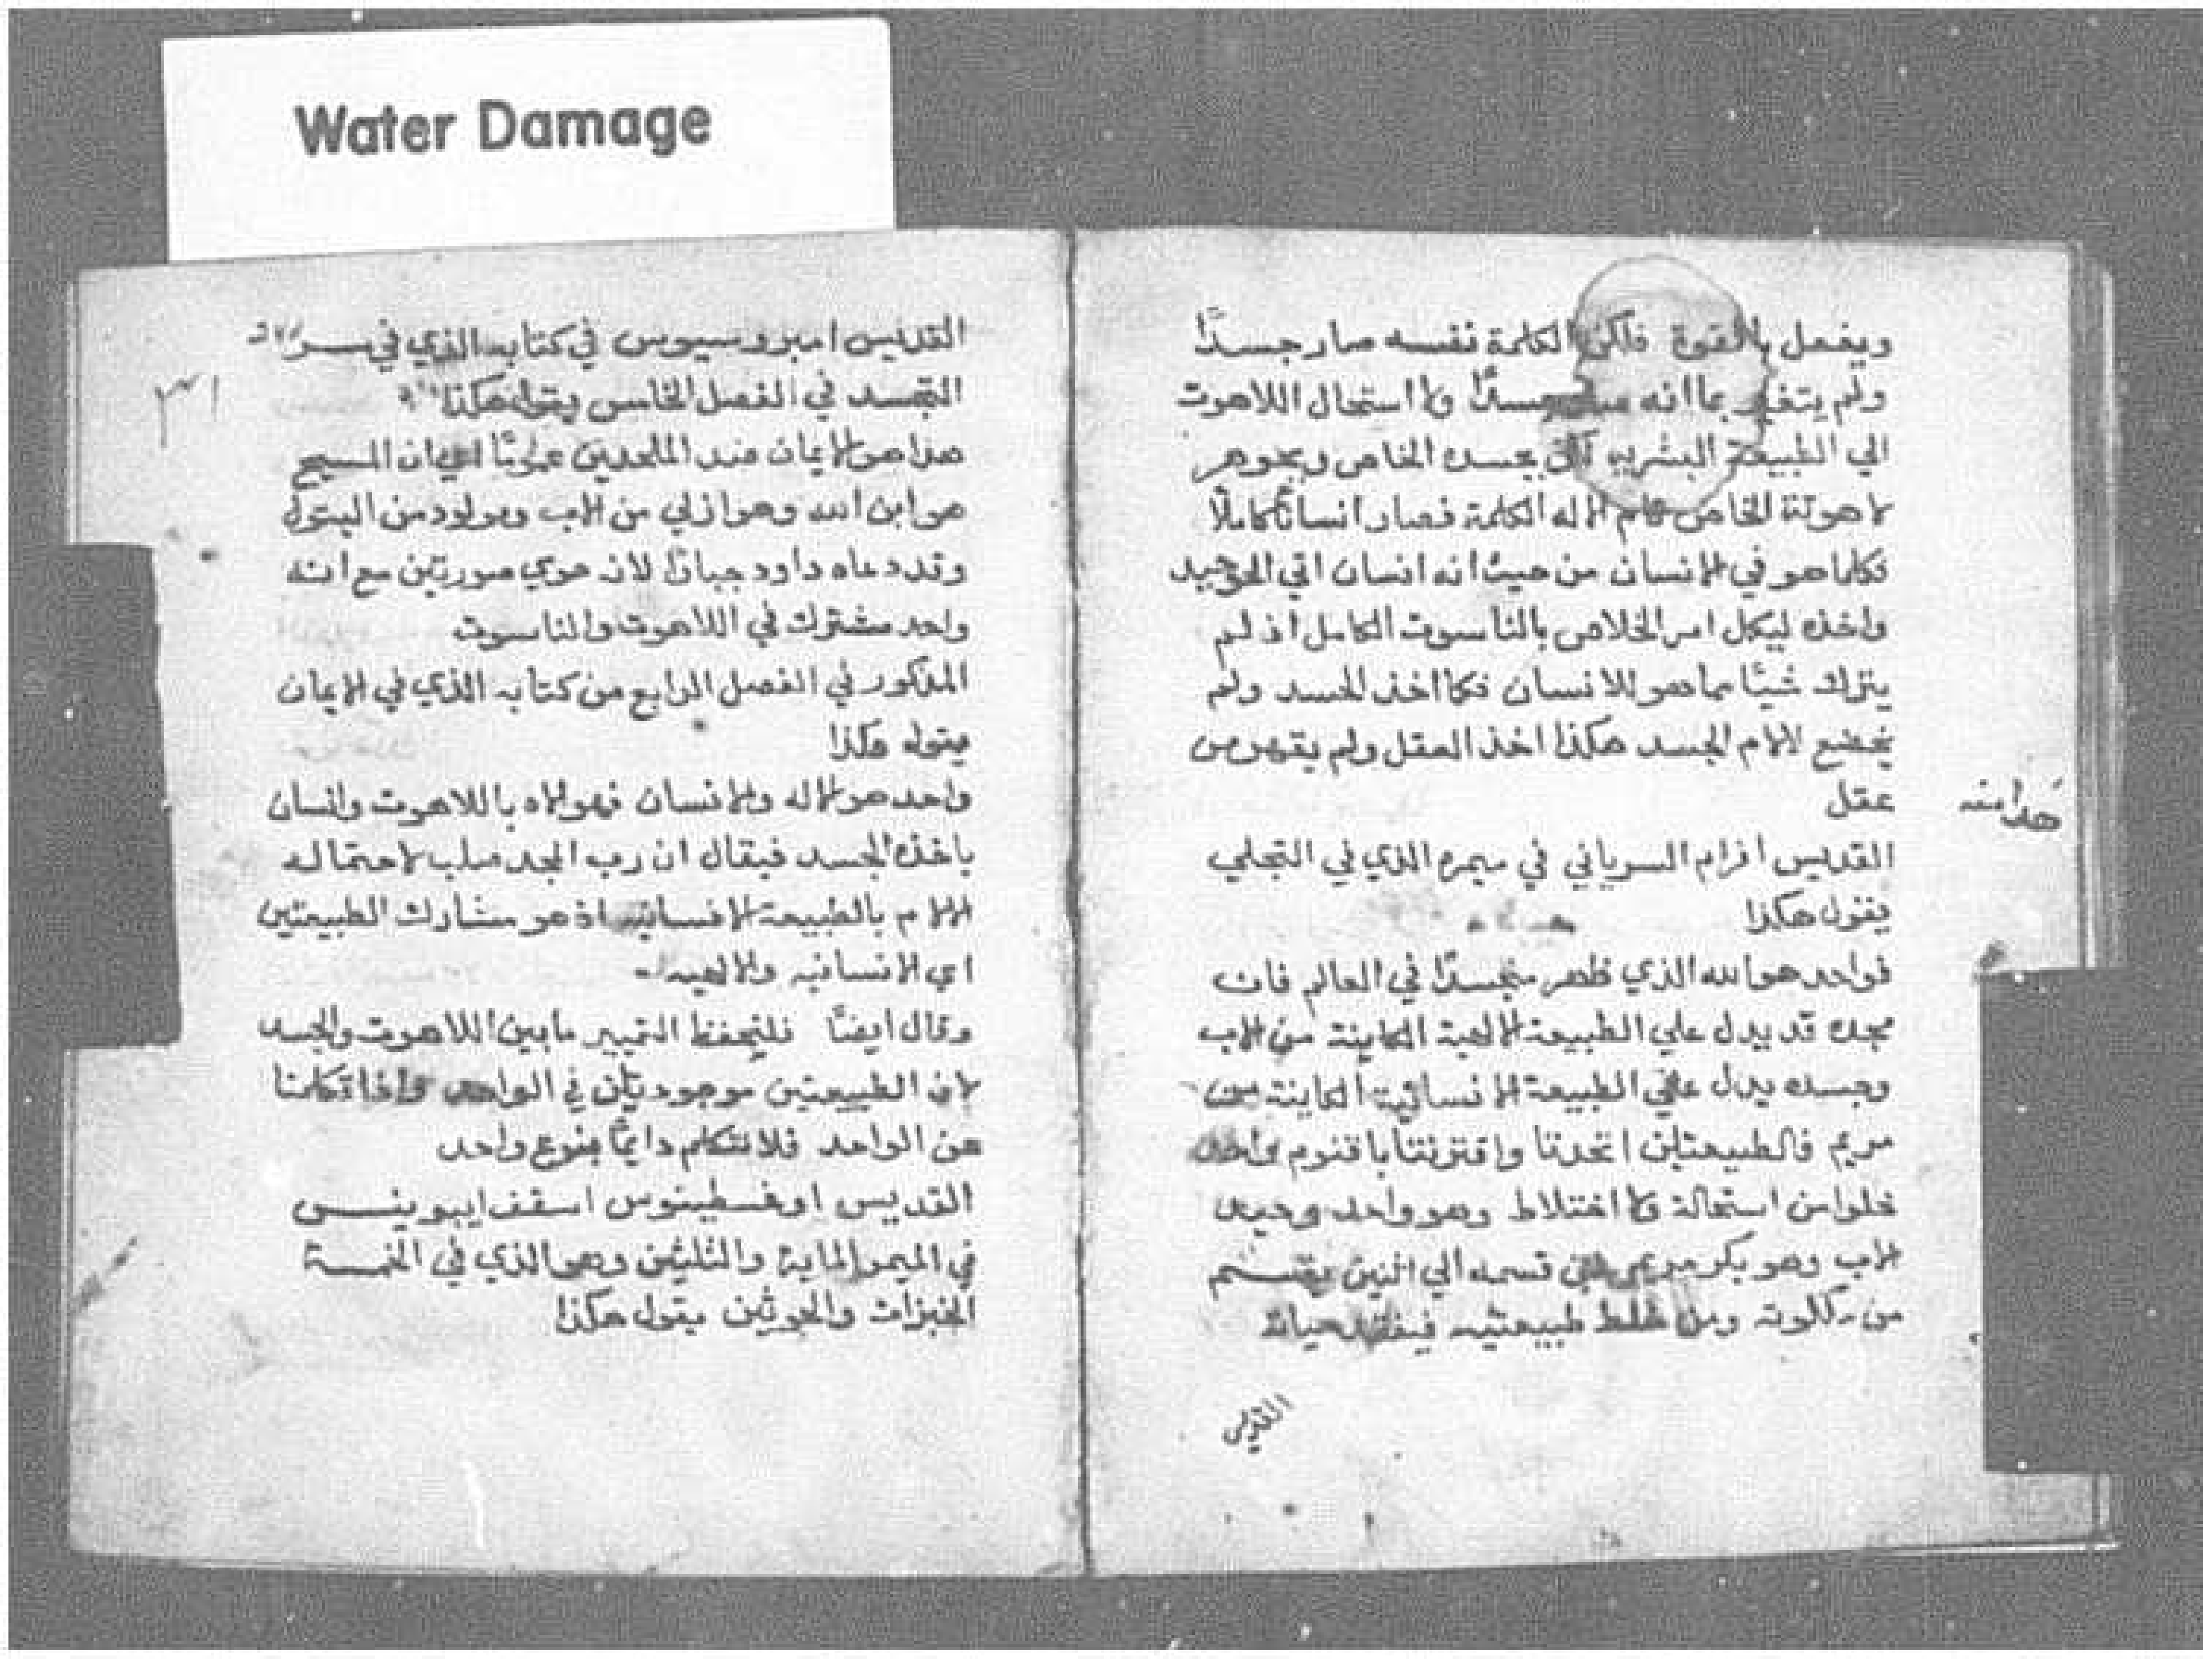 Water Damage
ويفعل بالقوة فلكن الكلمة نفسه صار جسدًا
ولم يتغير بما انه جسدًا ولا استحال اللاهوت
الي الطبيعة البشريه لكن بجسده الخاص وبجوهر
لاهوته الخاص قام الاله الكلمة فصار انسانًا كاملًا
فكلما هو في الانسان من حيث انه انسان اتي الوحيد
واخذه ليكمل امر الخلاص بالناسوت الكامل اذ لم
يترك شيئًا مما هو للانسان فكما اخذ الجسد ولم
يخضع لالام الجسد هكذا اخذ العقل ولم يقهر من
عقل
القديس افرام السرياني في ميمره الذي في التجلي
يقول هكذا
فواحد هو الله الذي ظهر متجسدًا في العالم فان
مجده قد يدل علي الطبيعة الالهية الكاينة من الاب
وجسده يدل علي الطبيعة الانسانية الكاينة من
مريم فالطبيعتان اتحدتا واقترنتا باقنوم واحد
خلوا من استحالة ولا اختلاط وهو واحد وحيد
الاب وهو بكر مريم فمن قسمه الي اثنين يقسم
من ملكوته ومن خلط طبيعتيه فيفقد حياته
القديس
القديس امبروسيوس في كتابه الذي في سر
التجسد في الفصل الخامس يقول هكذا
هذا هو الايمان ان المسيح
هو ابن الله وهو ازلي من الاب ومولود من البتول
وقد دعاه داود جبارًا لانه حوي صورتين مع انه
واحد مشترك في اللاهوت والناسوت
المذكور في الفصل الرابع من كتابه الذي في الايمان
يقول هكذا
واحد هو الاله والانسان فهو الاه باللاهوت وانسان
باخذه الجسد فيقال ان رب المجد صلب لاحتماله
الالام بالطبيعة الانسانيه اذ هو مشارك الطبيعتين
اي الانسانيه والالهيه
وقال ايضًا فليتحفظ التمييز ما بين اللاهوت والجسد
لان الطبيعتين موجودتان في الواحد واذا تكلمنا
عن الواحد فلا نتكلم دايمًا بنوع واحد
القديس اوغسطينوس اسقف ايبونيس
في الميمر الماية والثلثين وهو الذي في الخمسة
الخبزات والحوتين يقول هكذا